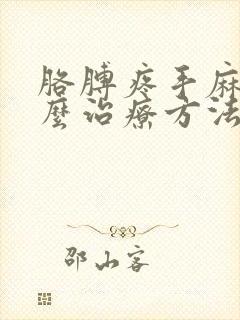 胳膊疼手麻
麼治療方法
邵山客